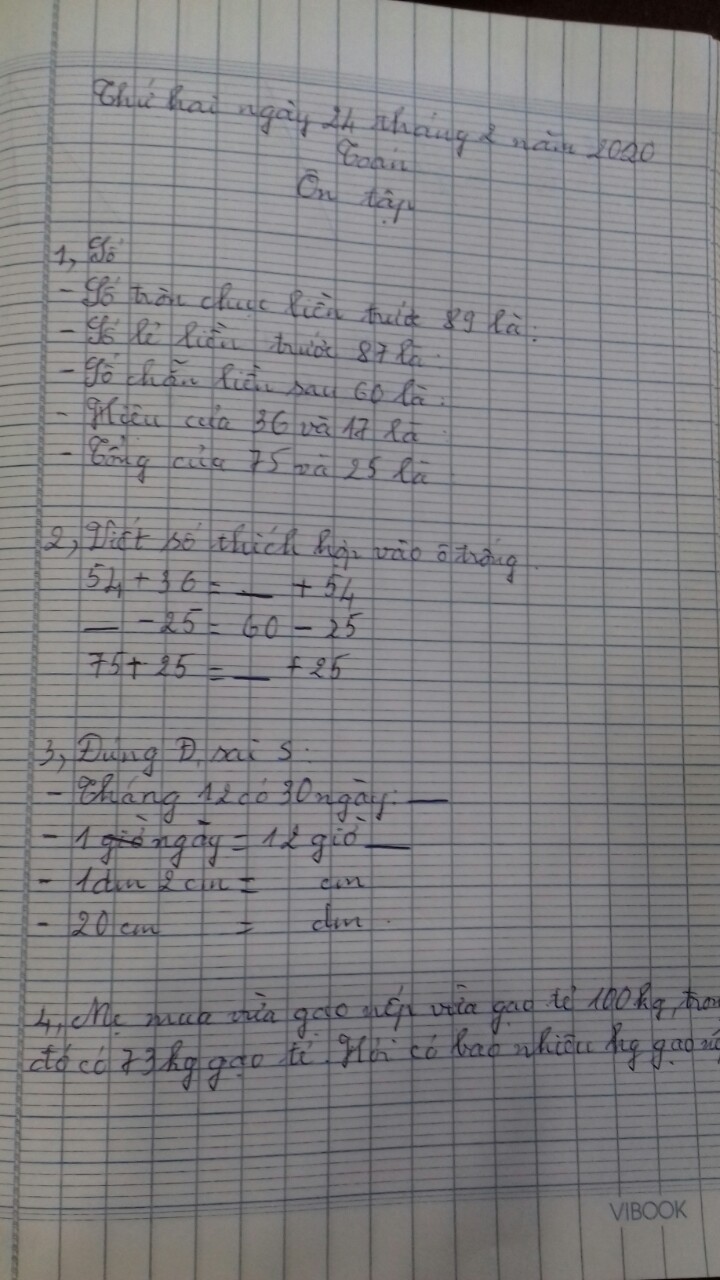 Thứ hai ngày 24 tháng 2 năm 2020
Toán
Ôn tập
1, Số
- Số tròn chục liền trước 89 là:
- Số lẻ liền trước 87 là:
- Số chẵn liền sau 60 là:
- Hiệu của 36 và 17 là
- Tổng của 75 và 25 là
2, Viết số thích hợp vào ô trống.
54 + 36 = __ + 54
__ - 25 = 60 - 25
75 + 25 = __ + 25
3, Đúng Đ, sai S:
- Tháng 12 có 30 ngày: __
- 1 giờ ngày = 12 giờ __
- 1dm 2cm = cm
- 20 cm = dm.
4, Mẹ mua vừa gạo nếp vừa gạo tẻ 100kg, tron
đó có 73 kg gạo tẻ. Hỏi có bao nhiêu kg gạo
VIBOOK